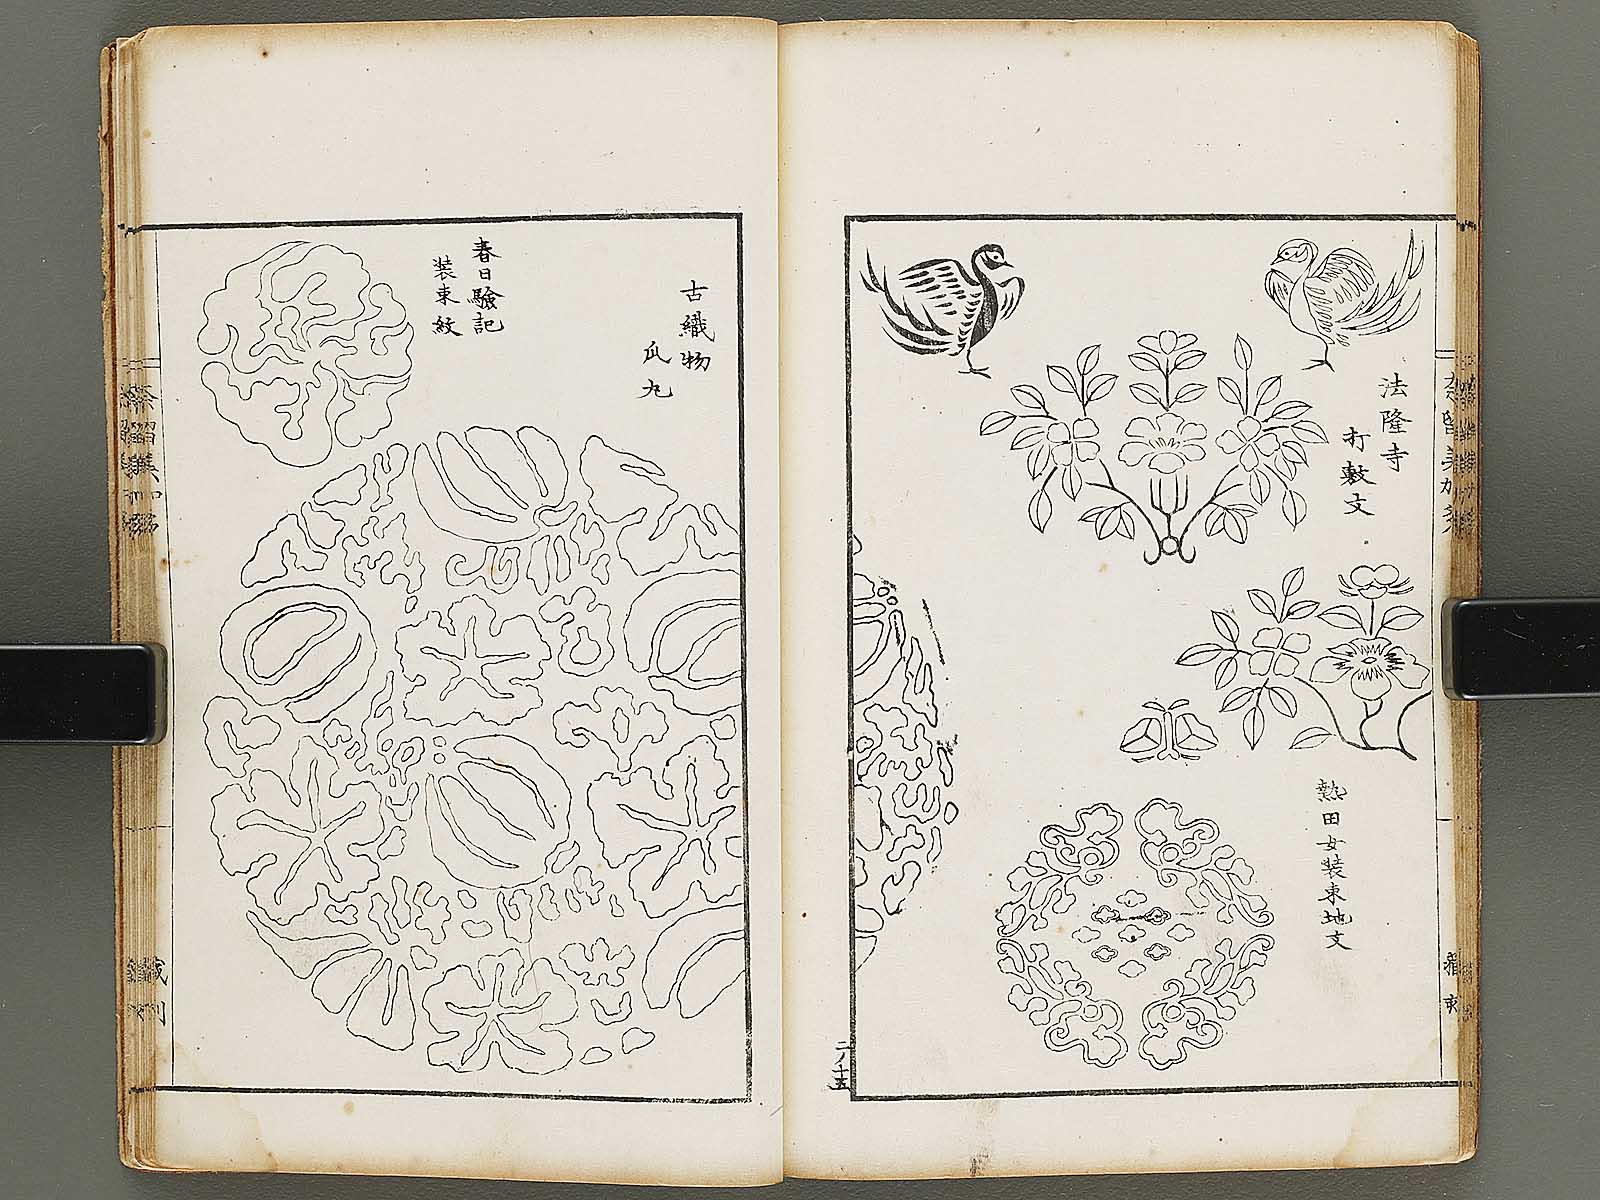 法隆寺
打敷文
熱田女装束地文
二ノ十五
古織物
瓜丸
春日驗記
装束紋